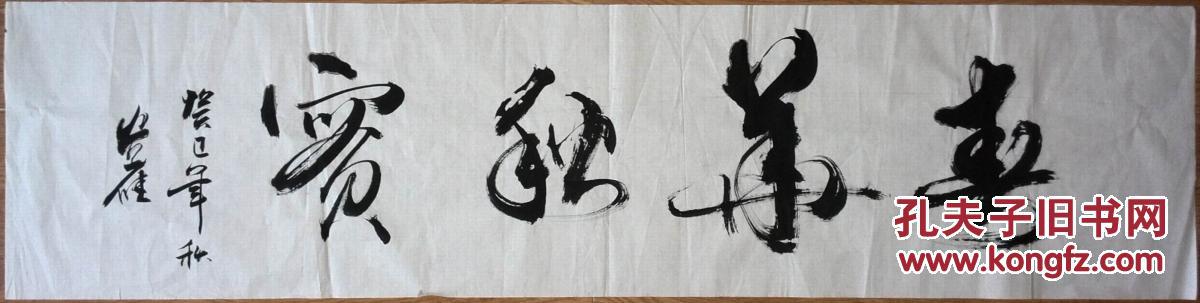 春華秋實
癸巳年秋
孔夫子旧书网
www.kongfz.com